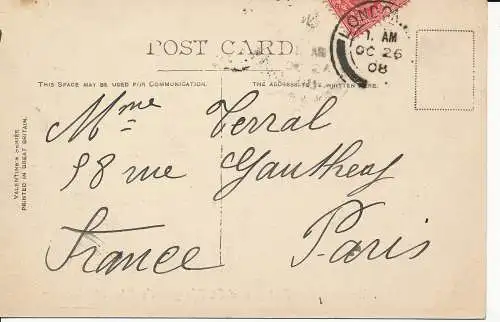 LONDON
1. AM
OC 26
08
POST CARD
THIS SPACE MAY BE USED FOR COMMUNICATION.
THE ADDRESS TO BE WRITTEN HERE.
VALENTINE'S SERIES
PRINTED IN GREAT BRITAIN.
Mme Terral
58 rue Gauthey
France Paris